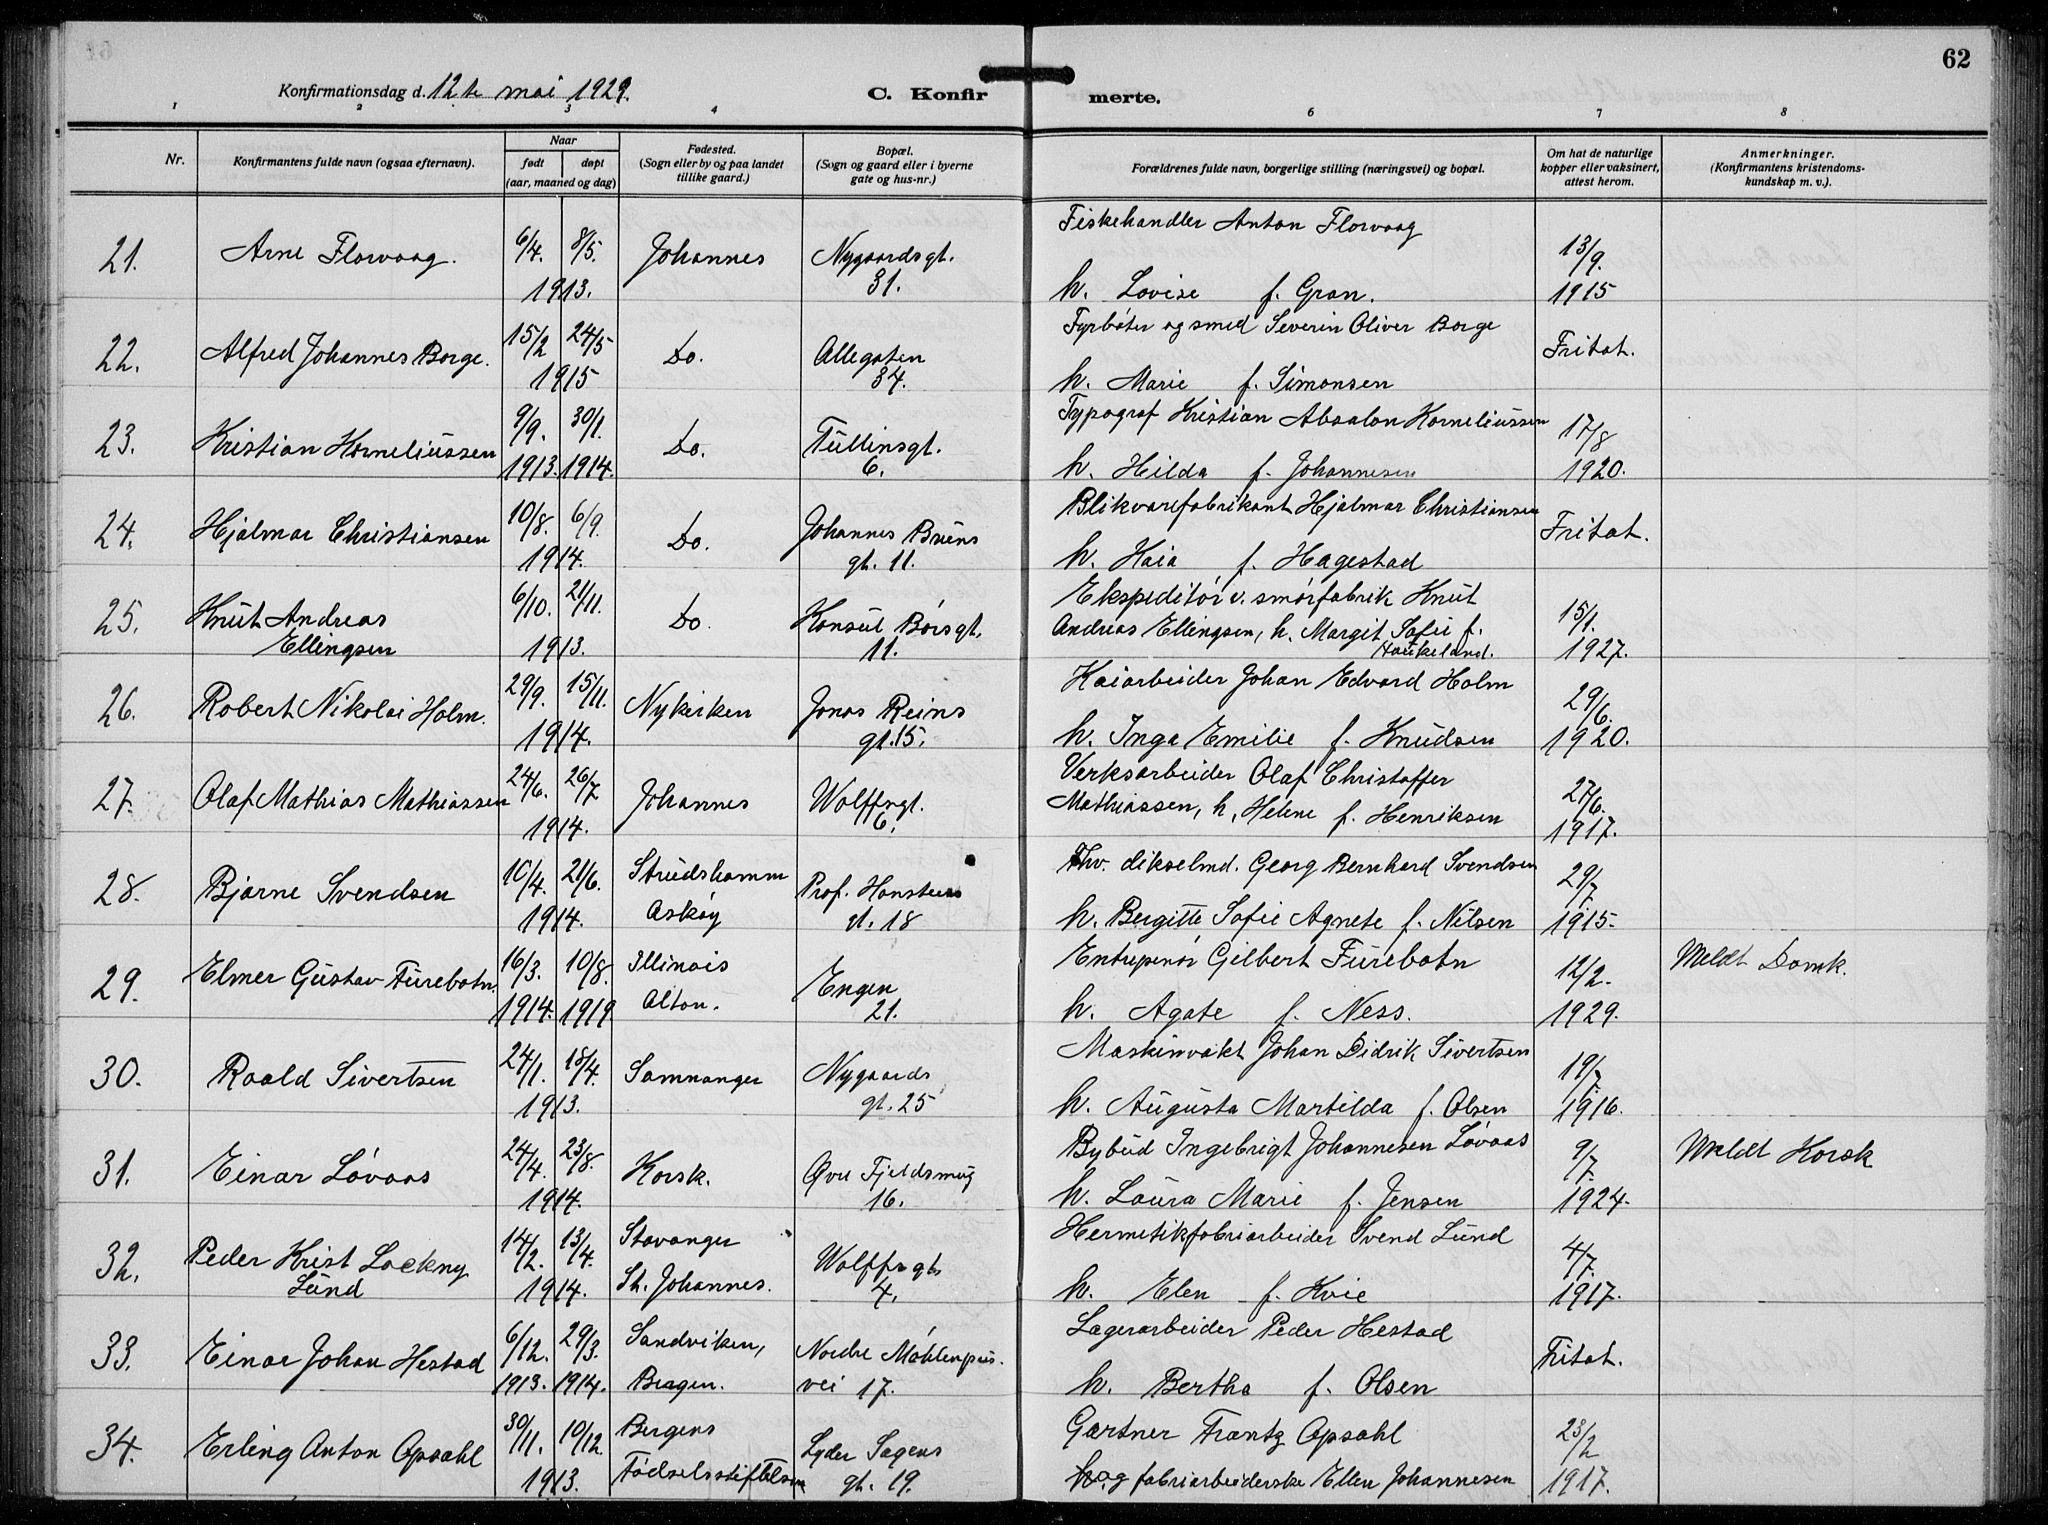 62
Konfirmationsdag d. 12te mai 1929.
C. Konfirmerte.
1 2 3 4 6 7 8
Nr. | Konfirmantens fulde navn (ogsaa efternavn). | Naar født døpt (aar, maaned og dag) | Fødested. (Sogn eller by og paa landet tillike gaard.) | Bopæl. (Sogn og gaard eller i byerne gate og hus-nr.) | Forældrenes fulde navn, borgerlige stilling (næringsvei) og bopæl. | Om hat de naturlige kopper eller vaksinert, attest herom. | Anmerkninger. (Konfirmantens kristendomskundskap m. v.).
21. Arne Florvaag. 6/4. 8/5. 1913. Johannes Nygaardsgt. 31. Fiskehandler Anton Florvaag
h. Lovise f. Gran. 13/9. 1915
22. Alfred Johannes Borge. 15/2 24/5 1915 Do. Allegaten 34. Fyrbøter og smed Severin Oliver Borge
h. Marie f. Simonsen Fritat.
23. Kristian Korneliussen 9/9. 1913. 30/1. 1914. Do. Tullinsgt. 6. Typograf Kristian Absalon Korneliussen
h. Hilda f. Johannesen 17/8 1920.
24. Hjalmar Christiansen 10/8. 6/9. 1914. Do. Johannes Bruns gt. 11. Blikvarefabrikant Hjalmar Christiansen
h. Kaia f. Hagestad Fritat.
25. Knut Andreas Ellingsen 6/10. 21/11. 1913. Do. Konsul Børsgt. 11. Ekspeditør v. smørfabrik Knut
Andreas Ellingsen, h. Margit Sofie f.
Haukeland. 15/1. 1927.
26. Robert Nikolai Holm. 29/9. 15/11. 1914. Nykirken Jonas Reins gt. 15. Kaiarbeider Johan Edvard Holm
h. Inga Emilie f. Knudsen 29/6. 1920.
27. Olaf Mathias Mathiassen 24/6. 26/7 1914. Johannes Wolffsgt. 6. Verksarbeider Olaf Christoffer
Mathiassen, h. Helene f. Henriksen 27/6. 1917.
28. Bjarne Svendsen 10/4. 21/6. 1914. Strudshamn Askøy Prof. Hansteens gt. 18 Fhv. dikselmd. Georg Bernhard Svendsen
h. Bergitte Sofie Agnete f. Nilsen 29/7 1915.
29. Elmer Gustav Furebotn. 16/3. 1914. 10/8. 1919 Illinois Alton. Engen 21. Entrepenør Gilbert Furebotn
h. Agate f. Ness. 12/2. 1929. Meldt Domk.
30. Roald Sivertsen 24/1. 18/4. 1913. Samnanger Nygaards gt. 25 Maskinvakt Johan Didrik Sivertsen
h. Augusta Martilda f. Olsen 19/7 1916.
31. Einar Løvaas 24/4. 23/8. 1914. Korsk. Øvre Fjeldsmug 16. Bybud Ingebrigt Johannesen Løvaas
h. Laura Marie f. Jensen 9/7. 1924. Meldt Korsk
32. Peder Krist Lockny Lund 14/2. 13/4. 1914. Stavanger St. Johannes. Wolffsgt. 4. Hermetikfabriarbeider Svend Lund
h. Elen f. Kvie 4/7. 1917.
33. Einar Johan Hestad 6/12. 1913. 29/3. 1914. Sandviken, Bergen. Nordre Møhlenpris. vei 17. Lagerarbeider Peder Hestad
h. Bertha f. Olsen Fritat.
34. Erling Anton Opsahl 30/11. 10/12 1913. Bergens Fødselsstiftelsen Lyder Sagens gt. 19. Gartner Frantz Opsahl
og fabriarbeiderske Ellen Johannesen 23/2 1917.